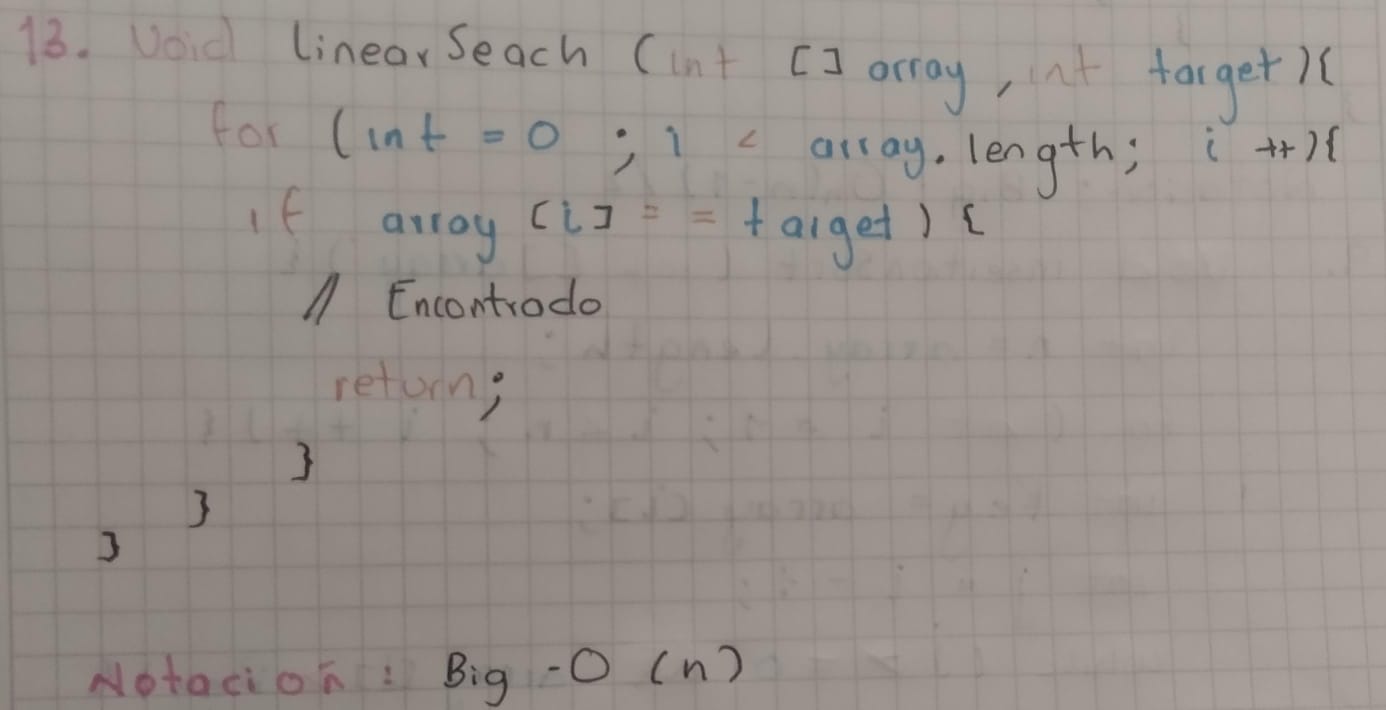 13. Void linearSeach (int [] array, int target){
for (int = 0 ; i < array.length; i ++){
if array [i] = = target) {
// Encontrado
return;
}
}
}
Notacion : Big -O (n)